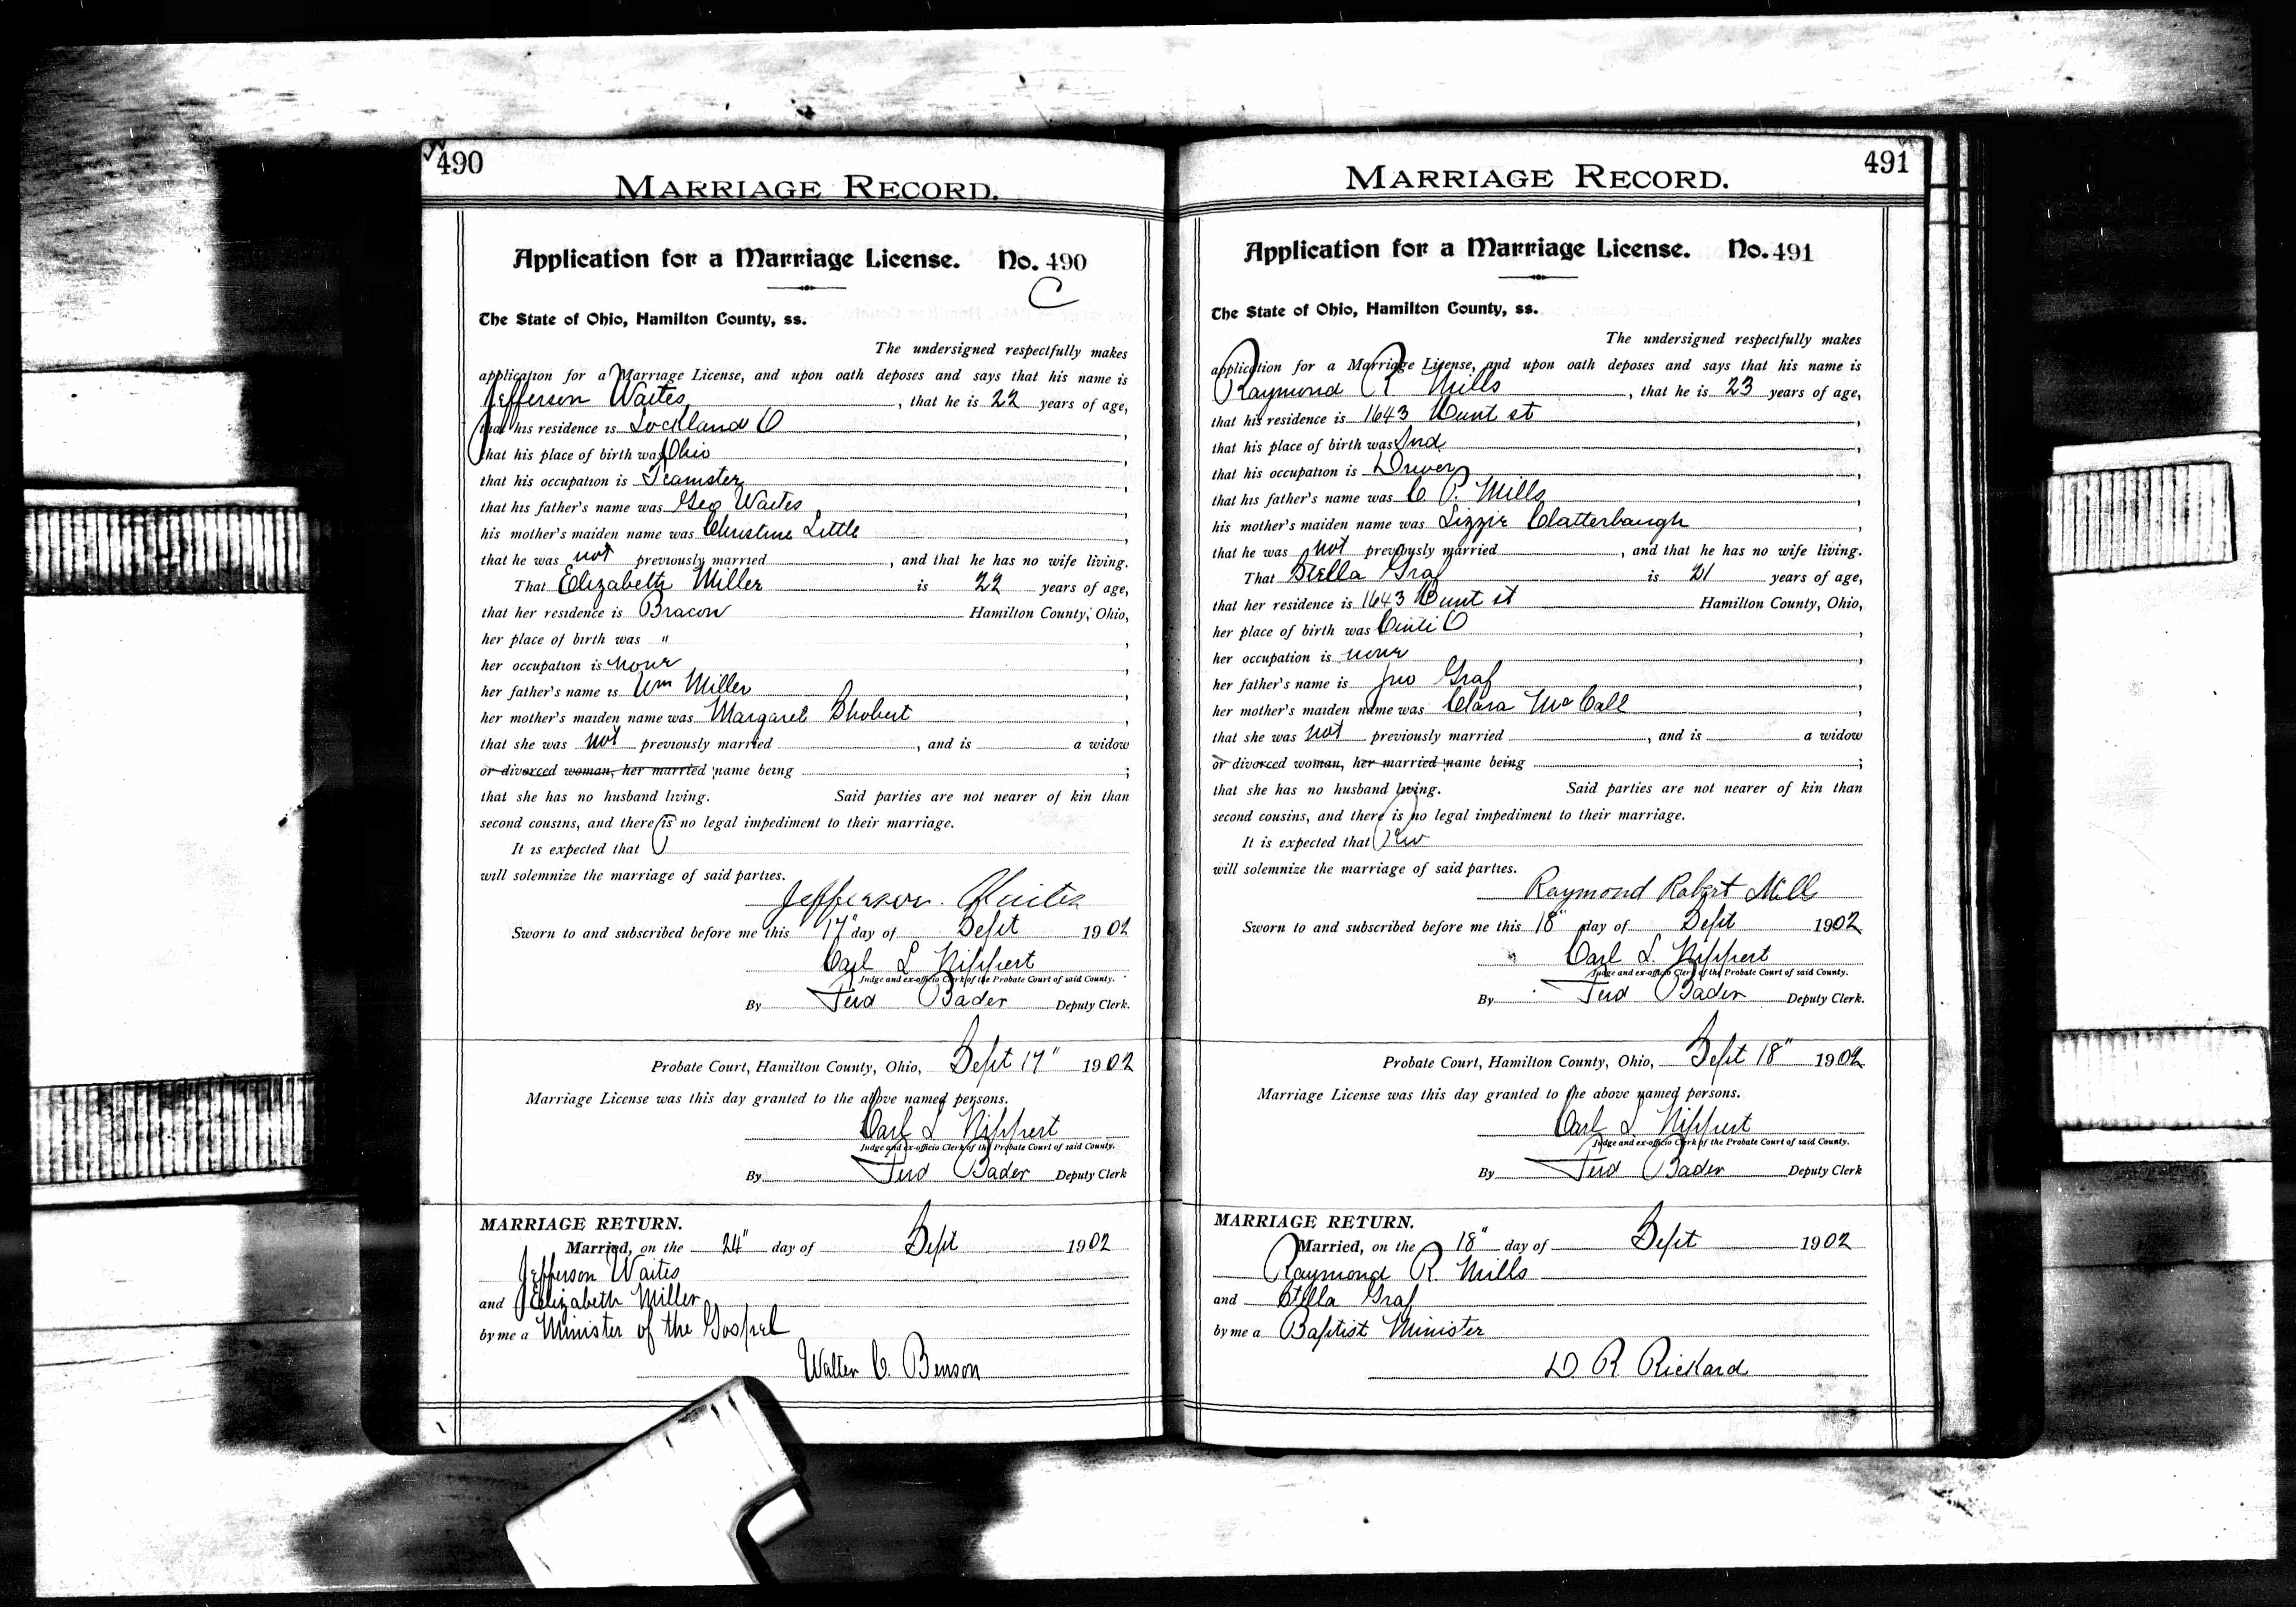 490
MARRIAGE RECORD.
Application for a Marriage License. No. 490
C
The State of Ohio, Hamilton County, ss.
The undersigned respectfully makes
application for a Marriage License, and upon oath deposes and says that his name is
Jefferson Waites, that he is 22 years of age,
that his residence is Lockland O,
that his place of birth was Ohio,
that his occupation is Teamster,
that his father's name was Geo Waites,
his mother's maiden name was Christine Little,
that he was not previously married, and that he has no wife living.
That Elizabeth Miller is 22 years of age,
that her residence is Bracon Hamilton County, Ohio,
her place of birth was ",
her occupation is none,
her father's name is Wm Miller,
her mother's maiden name was Margaret Shobert,
that she was not previously married, and is a widow
or divorced woman, her married name being ;
that she has no husband living. Said parties are not nearer of kin than
second cousins, and there is no legal impediment to their marriage.
It is expected that
will solemnize the marriage of said parties.
Jefferson. Waites
Sworn to and subscribed before me this 17" day of Sept 1902
Carl L Nippert
Judge and ex-officio Clerk of the Probate Court of said County.
By Ferd Bader Deputy Clerk.
Probate Court, Hamilton County, Ohio, Sept 17" 1902
Marriage License was this day granted to the above named persons.
Carl L Nippert
Judge and ex-officio Clerk of the Probate Court of said County.
By Ferd Bader Deputy Clerk
MARRIAGE RETURN.
Married, on the 24" day of Sept 1902
Jefferson Waites
and Elizabeth Miller
by me a Minister of the Gospel
Walter C. Benson
491
MARRIAGE RECORD.
Application for a Marriage License. No. 491
The State of Ohio, Hamilton County, ss.
The undersigned respectfully makes
application for a Marriage License, and upon oath deposes and says that his name is
Raymond R Mills, that he is 23 years of age,
that his residence is 1643 Hunt st,
that his place of birth was Ind,
that his occupation is Driver,
that his father's name was C P. Mills,
his mother's maiden name was Lizzie Clatterbaugh,
that he was not previously married, and that he has no wife living.
That Stella Graf is 21 years of age,
that her residence is 1643 Hunt st Hamilton County, Ohio,
her place of birth was Cinti O,
her occupation is none,
her father's name is Jno Graf,
her mother's maiden name was Clara McCall,
that she was not previously married, and is a widow
or divorced woman, her married name being ;
that she has no husband living. Said parties are not nearer of kin than
second cousins, and there is no legal impediment to their marriage.
It is expected that
will solemnize the marriage of said parties.
Raymond Robert Mills
Sworn to and subscribed before me this 18" day of Sept 1902
Carl L. Nippert
Judge and ex-officio Clerk of the Probate Court of said County.
By Ferd Bader Deputy Clerk.
Probate Court, Hamilton County, Ohio, Sept 18" 1902
Marriage License was this day granted to the above named persons.
Carl L Nippert
Judge and ex-officio Clerk of the Probate Court of said County.
By Ferd Bader Deputy Clerk
MARRIAGE RETURN.
Married, on the 18" day of Sept 1902
Raymond R. Mills
and Stella Graf
by me a Baptist Minister
D R Rickard